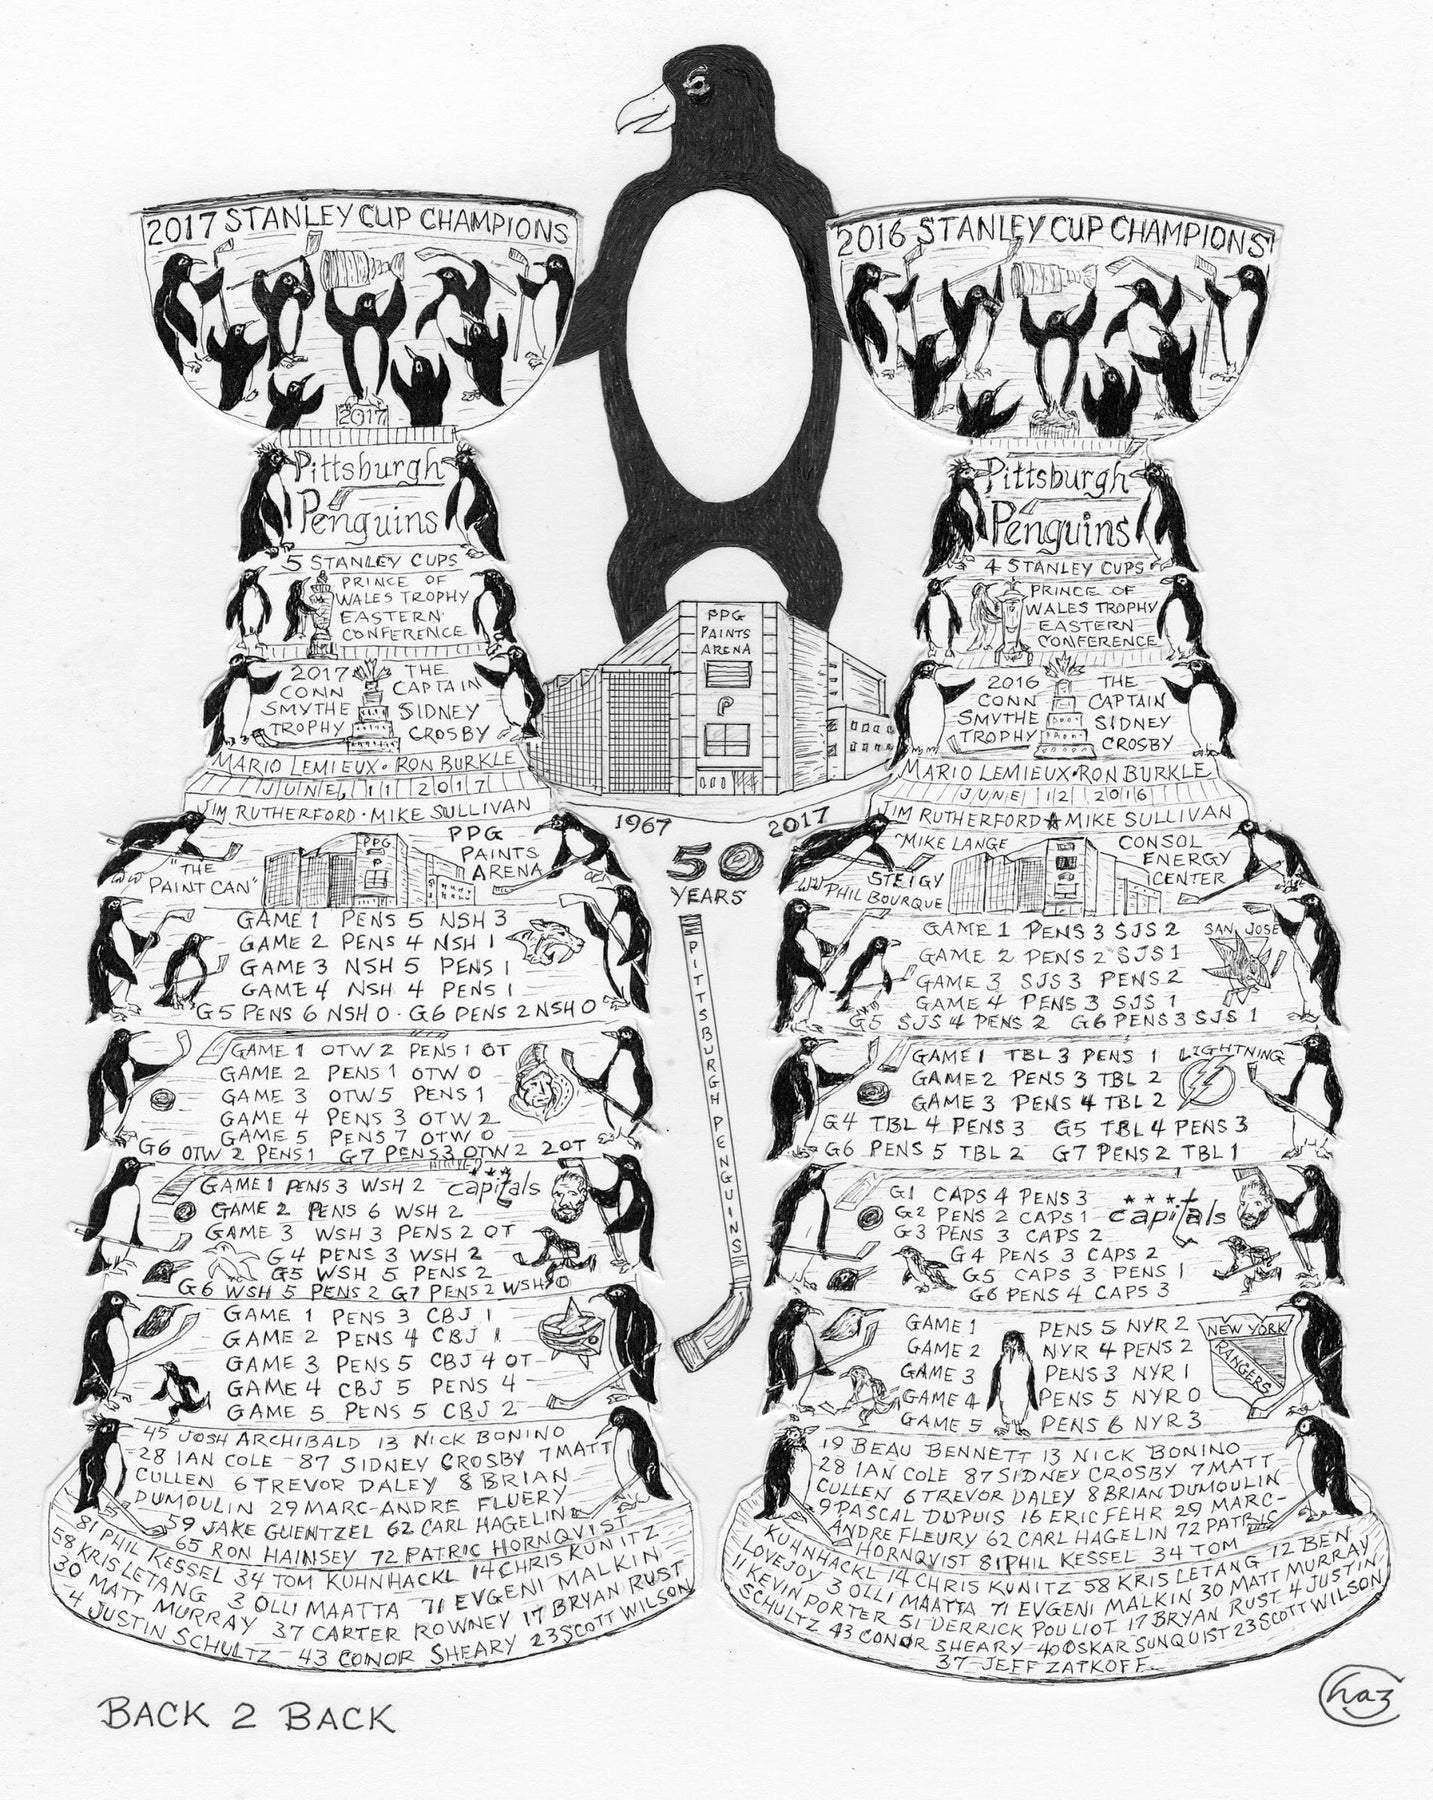 2017 STANLEY CUP CHAMPIONS
2017
Pittsburgh
Penguins
5 STANLEY CUPS
PRINCE OF
WALES TROPHY
EASTERN
CONFERENCE
2017
CONN
SMYTHE
TROPHY
THE
CAPTAIN
SIDNEY
CROSBY
MARIO LEMIEUX · RON BURKLE
JUNE 11 2017
JIM RUTHERFORD · MIKE SULLIVAN
"THE
PAINT CAN"
PPG
P
PPG
PAINTS
ARENA
GAME 1 PENS 5 NSH 3
GAME 2 PENS 4 NSH 1
GAME 3 NSH 5 PENS 1
GAME 4 NSH 4 PENS 1
G5 PENS 6 NSH 0 · G6 PENS 2 NSH 0
GAME 1 OTW 2 PENS 1 OT
GAME 2 PENS 1 OTW 0
GAME 3 OTW 5 PENS 1
GAME 4 PENS 3 OTW 2
GAME 5 PENS 7 OTW 0
G6 OTW 2 PENS 1 G7 PENS 3 OTW 2 2OT
GAME 1 PENS 3 WSH 2 capitals
GAME 2 PENS 6 WSH 2
GAME 3 WSH 3 PENS 2 OT
G4 PENS 3 WSH 2
G5 WSH 5 PENS 2
G6 WSH 5 PENS 2 G7 PENS 2 WSH 0
GAME 1 PENS 3 CBJ 1
GAME 2 PENS 4 CBJ 1
GAME 3 PENS 5 CBJ 4 OT
GAME 4 CBJ 5 PENS 4
GAME 5 PENS 5 CBJ 2
45 JOSH ARCHIBALD 13 NICK BONINO
28 IAN COLE - 87 SIDNEY CROSBY 7 MATT
CULLEN 6 TREVOR DALEY 8 BRIAN
DUMOULIN 29 MARC-ANDRE FLUERY
59 JAKE GUENTZEL 62 CARL HAGELIN
65 RON HAINSEY 72 PATRIC HORNQVIST
81 PHIL KESSEL 34 TOM KUHNHACKL 14 CHRIS KUNITZ
58 KRIS LETANG 3 OLLI MAATTA 71 EVGENI MALKIN
30 MATT MURRAY 37 CARTER ROWNEY 17 BRYAN RUST
4 JUSTIN SCHULTZ - 43 CONOR SHEARY 23 SCOTT WILSON
PPG
PAINTS
ARENA
P
1967 2017
50
YEARS
PITTSBURGH PENGUINS
2016 STANLEY CUP CHAMPIONS
Pittsburgh
Penguins
4 STANLEY CUPS
PRINCE OF
WALES TROPHY
EASTERN
CONFERENCE
2016
CONN
SMYTHE
TROPHY
THE
CAPTAIN
SIDNEY
CROSBY
MARIO LEMIEUX · RON BURKLE
JUNE 12 2016
JIM RUTHERFORD ★ MIKE SULLIVAN
"MIKE LANGE
STEIGY
PHIL BOURQUE
CONSOL
ENERGY
CENTER
GAME 1 PENS 3 SJS 2
GAME 2 PENS 2 SJS 1
GAME 3 SJS 3 PENS 2
GAME 4 PENS 3 SJS 1
G5 SJS 4 PENS 2 G6 PENS 3 SJS 1
SAN JOSE
GAME 1 TBL 3 PENS 1
GAME 2 PENS 3 TBL 2
GAME 3 PENS 4 TBL 2
G4 TBL 4 PENS 3 G5 TBL 4 PENS 3
G6 PENS 5 TBL 2 G7 PENS 2 TBL 1
LIGHTNING
G1 CAPS 4 PENS 3
G2 PENS 2 CAPS 1
G3 PENS 3 CAPS 2
G4 PENS 3 CAPS 2
G5 CAPS 3 PENS 1
G6 PENS 4 CAPS 3
capitals
GAME 1 PENS 5 NYR 2
GAME 2 NYR 4 PENS 2
GAME 3 PENS 3 NYR 1
GAME 4 PENS 5 NYR 0
GAME 5 PENS 6 NYR 3
NEW YORK
RANGERS
19 BEAU BENNETT 13 NICK BONINO
28 IAN COLE 87 SIDNEY CROSBY 7 MATT
CULLEN 6 TREVOR DALEY 8 BRIAN DUMOULIN
9 PASCAL DUPUIS 16 ERIC FEHR 29 MARC-
ANDRE FLEURY 62 CARL HAGELIN 72 PATRIC
HORNQVIST 81 PHIL KESSEL 34 TOM
KUHNHACKL 14 CHRIS KUNITZ 58 KRIS LETANG 12 BEN
LOVEJOY 3 OLLI MAATTA 71 EVGENI MALKIN 30 MATT MURRAY
11 KEVIN PORTER 51 DERRICK POULIOT 17 BRYAN RUST 4 JUSTIN
SCHULTZ 43 CONOR SHEARY 40 OSKAR SUNQUIST 23 SCOTT WILSON
37 - JEFF ZATKOFF
BACK 2 BACK
Chaz